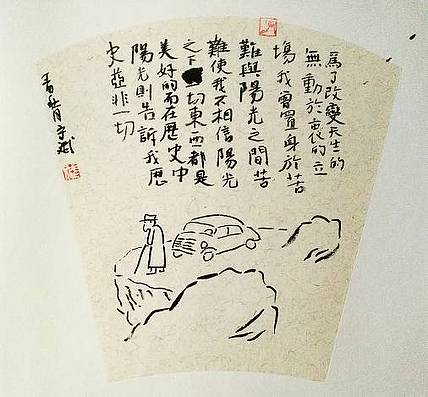 為了改變天生的
無動於衷的立
場我曾置身於苦
難與陽光之間苦
難使我不相信陽光
之下一切東西都是
美好的而在歷史中
陽光則告訴我歷
史並非一切